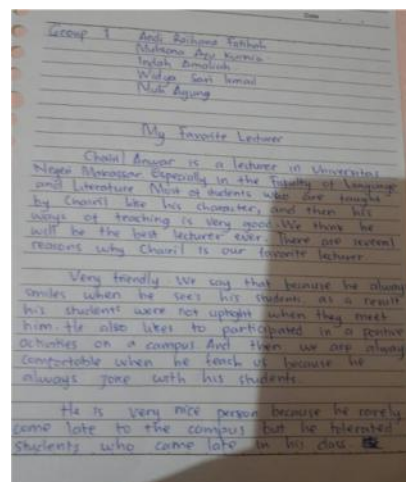 Date
Group 1 Andi Raihana Fatihah
Mutsana Ayu Kurnia
Indah Amaliah
Widya Sari Ismail
Muh Agung
My Favorite Lecturer
Chairil Anwar is a lecturer in Universitas
Negeri Makassar Especially in the Faculty of Language
and Literature Most of students who are taught
by Chairil like his character, and then his
ways of teaching is very good. We think he
will be the best lecturer ever. There are several
reasons why Chairil is our favorite lecturer
Very friendly. We say that because he alway
smiles when he see's his students. as a result
his students were not uptight when they meet
him. He also likes to participated in a positive
activities on a campus And then we are alway
comfortable when he teach us because he
always joke with his students.
He is very nice person because he rarely
come late to the campus but he tolerated
students who came late in his class.